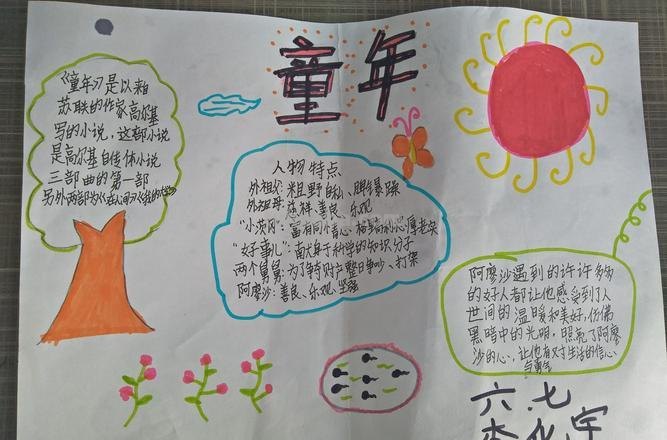 童年
《童年》是以前
苏联的作家高尔基
写的小说，这部小说
是高尔基自传体小说
三部曲的第一部
另外两部为《在人间》《我的大学》
人物特点
外祖父：粗野自私、脾气暴躁
外祖母：慈祥善良、乐观
"小茨冈"：富有同情心
"好事儿"：献身于科学的知识分子
两个舅舅：为了争财产整日争吵、打架
阿廖沙：善良、乐观、坚强
阿廖沙遇到的许许多多
的好人都让他感受到了人
世间的温暖和美好，仿佛
黑暗中的光明，照亮了阿廖
沙的心，让他有对生活的信心
与勇气
六、七